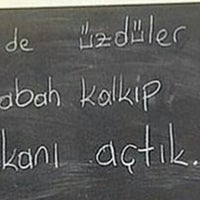 de üzdüler
abah kalkıp
kanı açtık.